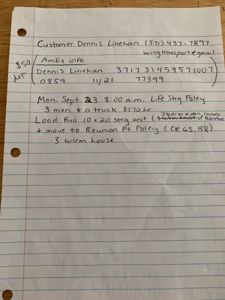 Customer Dennis Linehan (571) 437-7897
wingtransport@gmail
$50
AmEx info
Dennis Linehan
Mon. Sept. 23 8:00 a.m. Life Strg Foley
3 men & a truck $170 hr
Load Full 10 x 20 strg unit
& move to Reunion Pt Foley (CR 65, 98)
3 bdrm house